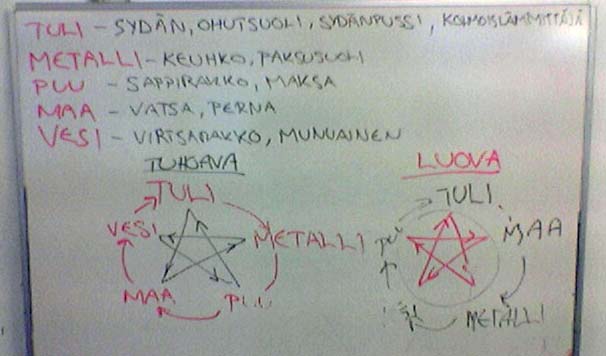 TULI - SYDÄN, OHUTSUOLI, SYDÄNPUSSI, KOLMOISLÄMMITTÄJÄ
METALLI - KEUHKO, PAKSUSUOLI
PUU - SAPPIRAKKO, MAKSA
MAA - VATSA, PERNA
VESI - VIRTSARAKKO, MUNUAINEN
TUHOAVA
TULI
VESI
METALLI
MAA
PUU
LUOVA
TULI
MAA
METALLI